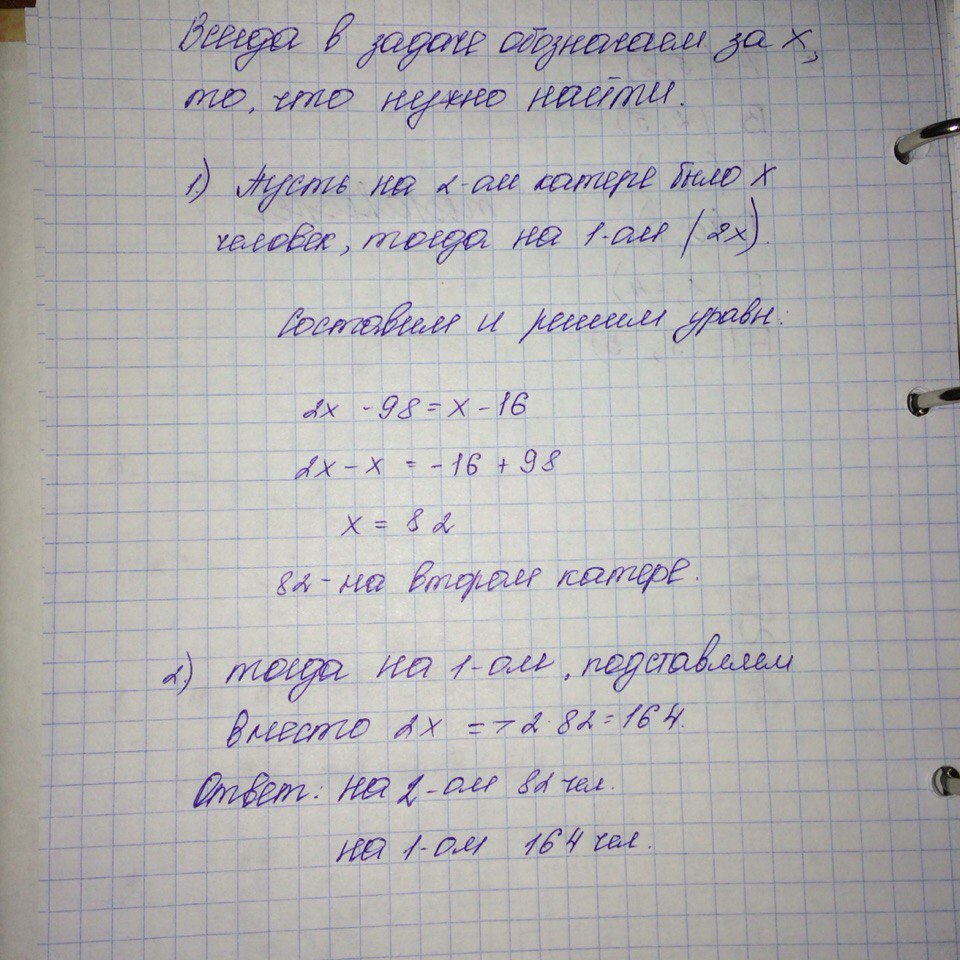 Всегда в задаче обозначаем за х,
то, что нужно найти.
1.) Пусть на 2-ом катере было х
человек, тогда на 1-ом (2х).
Составим и решим уравн:
2х - 98 = х - 16
2х - х = - 16 + 98
х = 82
82 - на втором катере.
2.) тогда на 1-ом, подставляем
вместо 2х => 2·82 = 164.
Ответ: на 2-ом 82 чел.
на 1-ом 164 чел.